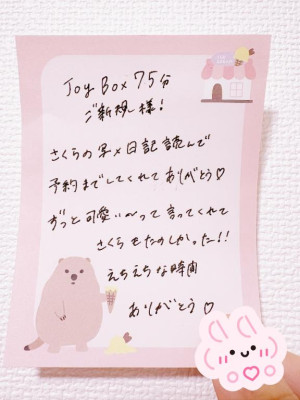 Joy Box 75分
ご新規様!
さくらの写メ日記読んで
予約までしてくれてありがとう♡
ずっと可愛い〜って言ってくれて
さくらもたのしかった!!
えちえちな時間
ありがとう♡